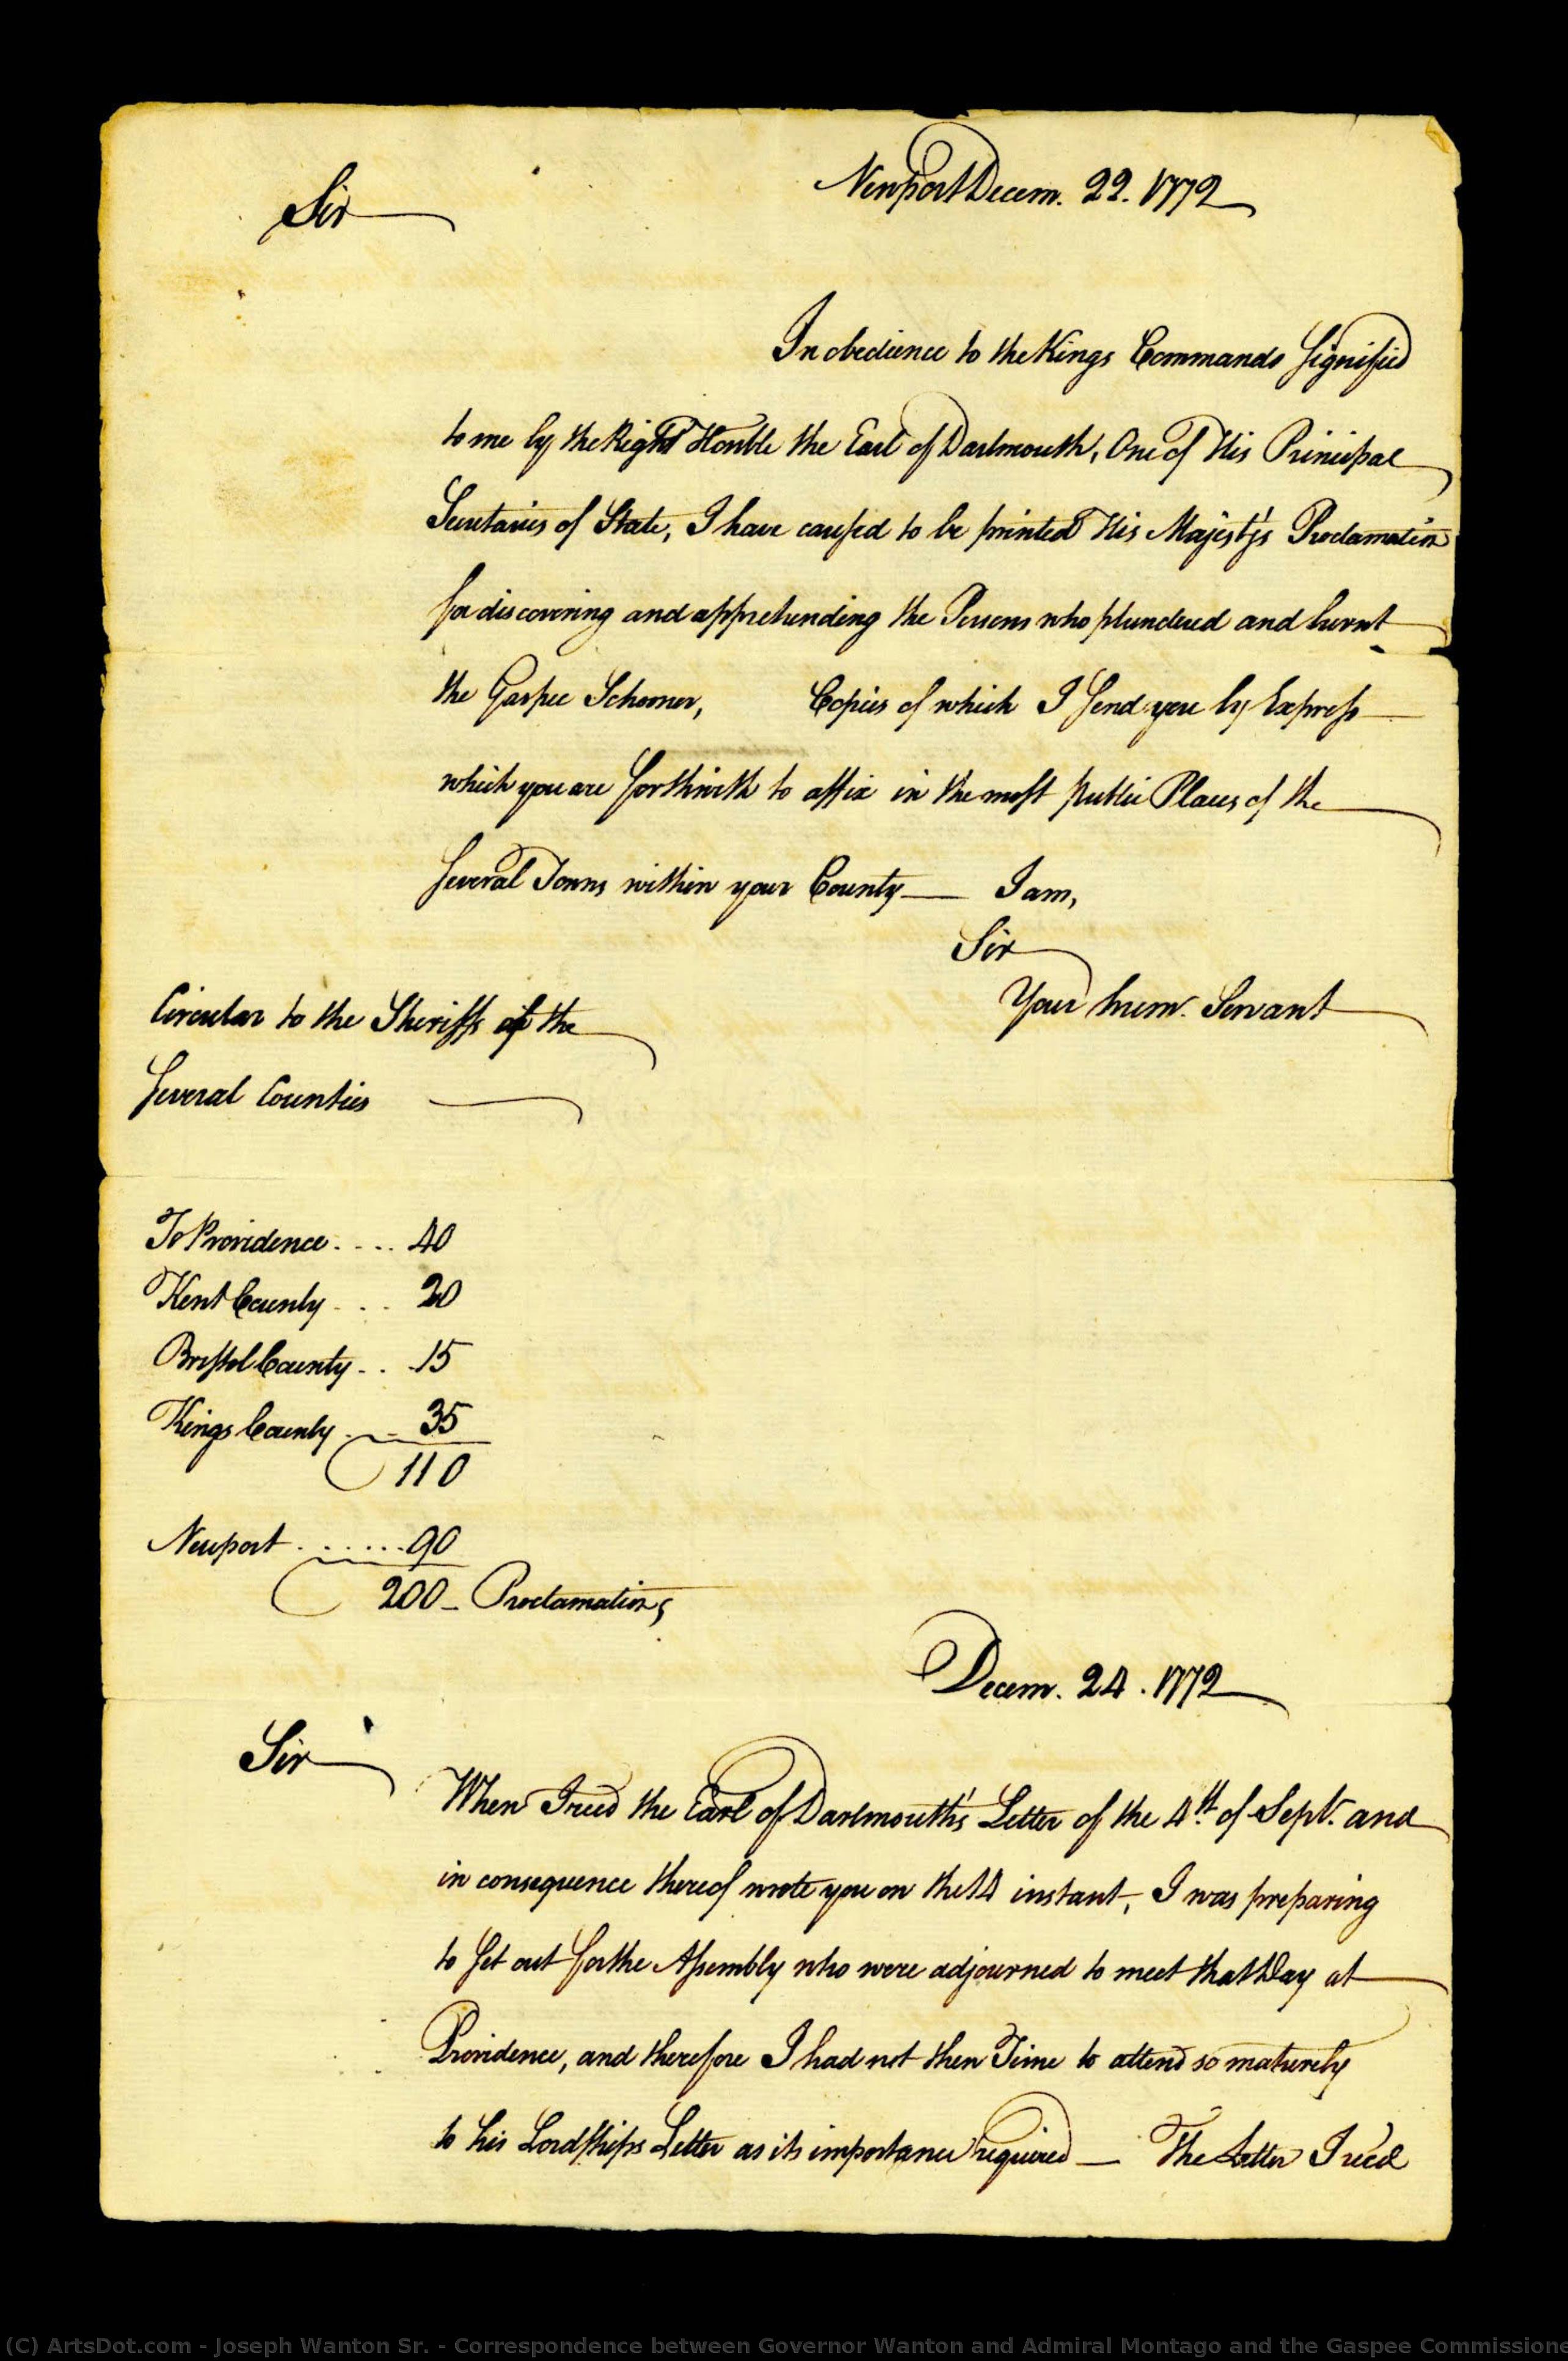 Sir
Newport Decem. 22. 1772
In obedience to the Kings Commands signified
to me by the Right Honble the Earl of Dartmouth, One of His Principal
Secretaries of State, I have caused to be printed His Majesty's Proclamation
for discovering and apprehending the Persons who plundered and burnt
the Gaspee Schooner, Copies of which I send you by Express
which you are forthwith to affix in the most public Places of the
several Towns within your County— I am,
Sir
Your hum. Servant
Circular to the Sheriffs of the
several Counties
To Providence .... 40
Kent County ... 20
Bristol County .. 15
Kings County .. 35
110
Newport ...... 90
200 – Proclamations
Decem. 24. 1772
Sir
When I recd the Earl of Dartmouth's Letter of the 4th. of Sept. and
in consequence thereof wrote you on the 14 instant, I was preparing
to set out for the Assembly who were adjourned to meet that Day at
Providence, and therefore I had not then Time to attend so maturely
to his Lordships Letter as its importance required — The Letter I recd
(C) ArtsDot.com - Joseph Wanton Sr. - Correspondence between Governor Wanton and Admiral Montago and the Gaspee Commissione